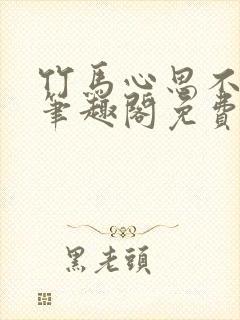 竹馬心思不
筆趣閣免費
黑老頭